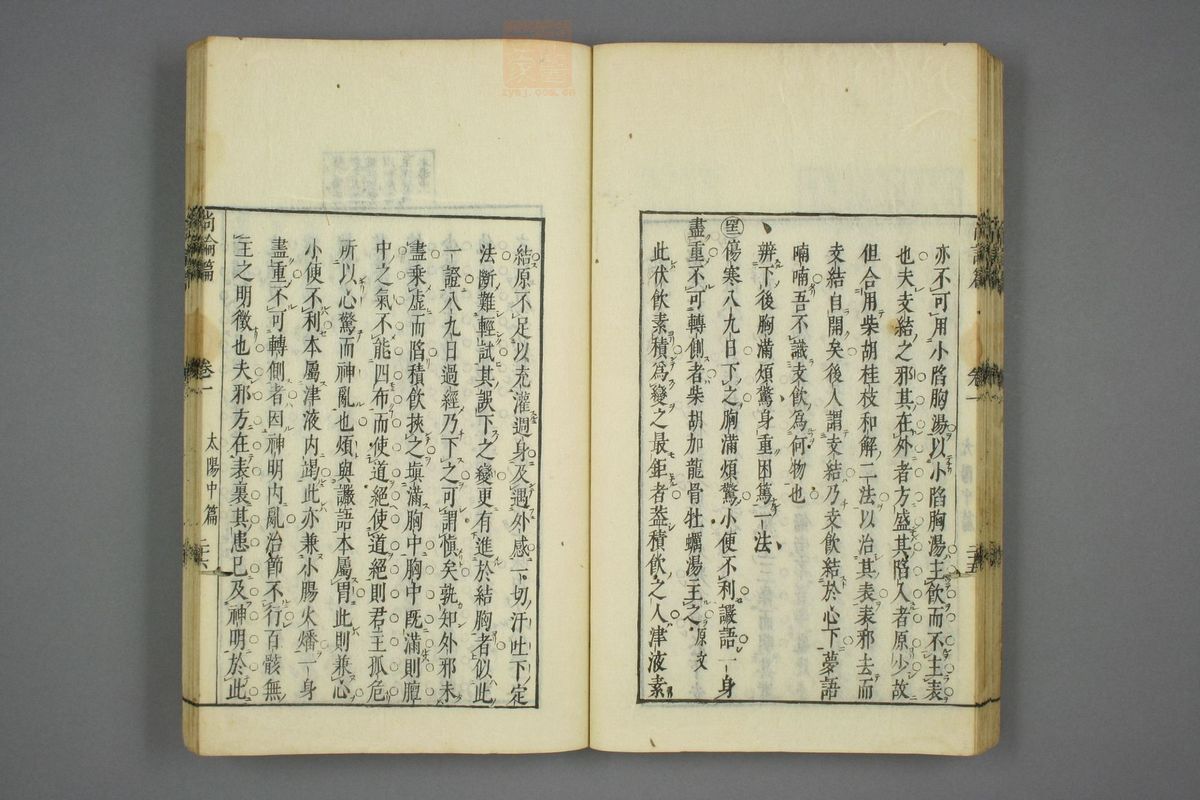 亦不可用小陷胸湯以小陷胸湯主飲而不主表
也夫支結之邪其在外者方盛其陷入者原少故
但合用柴胡桂枝和解二法以治其表表邪去而
支結自開矣後人謂支結乃支飲結於心下夢語
喃喃吾不識支飲爲何物也
辨下後胸滿煩驚身重困篤一法
傷寒八九日下之胸滿煩驚小便不利讝語一身
盡重不可轉側者柴胡加龍骨牡蠣湯主之原文
此伏飲素積爲變之最鉅者葢積飲之人津液素
結原不足以充灌週身及遇外感一切汗吐下定
法斷難輕試其誤下之變更有進於結胸者似此
一證八九日過經乃下之可謂愼矣孰知外邪未
盡乘虛而陷積飲挾之塡滿胸中胸中既滿則膻
中之氣不能四布而使道絕使道絕則君主孤危
所以心驚而神亂也煩與讝語本屬胃此則兼心
小便不利本屬津液内竭此亦兼小腸火燔一身
盡重不可轉側者因神明内亂治節不行百骸無
主之明徵也夫邪方在表裏其患已及神明於此
尚論篇
卷一
太陽中篇
二十六
zysj.com.cn